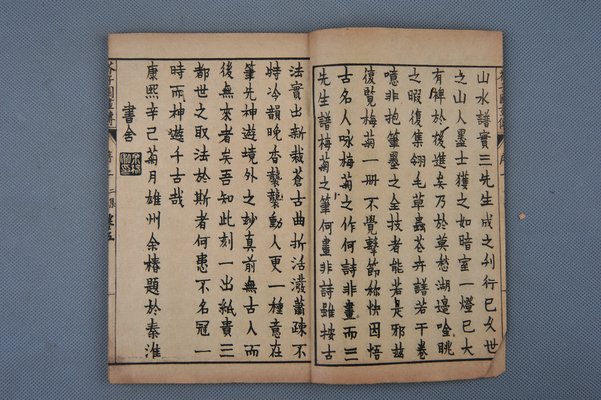 山水譜實三先生成之刋行已久世
之山人墨士獲之如暗室一燈已大
有裨於後進矣乃於莫愁湖邊唫眺
之暇復集翎毛草蟲花卉譜若干卷
噫非抱筆墨之全技者能若是邪茲
復覽梅菊一冊不覺擊節称快因悟
古名人咏梅菊之作何詩非畫而三
先生譜梅菊之筆何畫非詩雖按古
法實出新裁蒼古曲折活潑蕭疎不
特冷韻晚香襲襲動人更一種意在
筆先神遊境外之妙真前無古人而
後無來者矣吾知此刻一出紙貴三
都世之取法於斯者何患不名冠一
時而神遊千古哉
康熙辛巳菊月雄州余椿題於秦淮
書舍